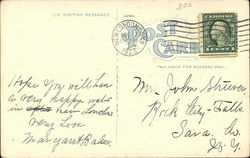 300
FOR WRITING MESSAGES
POST CARD
THIS SPACE FOR ADDRESS ONLY
Hope you will have
a very happy
in new London
Very Love
Margaret Baker
Mr. John
Rock City Falls
Sara. Co.
N.Y.